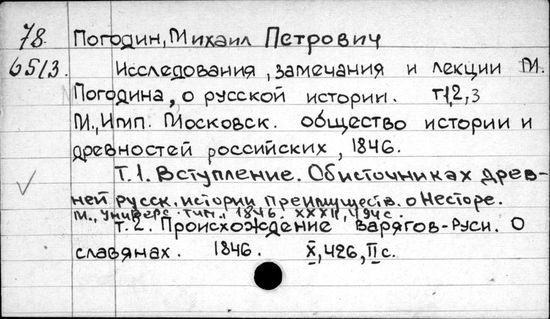 78. Погодин, Михаил Петрович
6513. Исследования, замечания и лекции М.
Погодина, о русской истории. т1,2,3
М., Имп. Московск. общество истории и
древностей российских, 1846.
Т.1. Вступление. Об источниках древ-
ней русск. истории преимуществ. о Несторе.
М., Универс. тип., 1846. XXXII, 494 с.
Т.2. Происхождение варягов-Руси. О
славянах. 1846. X, 426, II с.